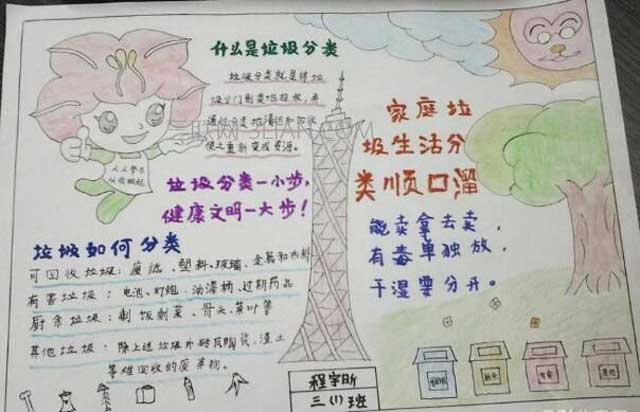 什么是垃圾分类
垃圾分类就是将垃
圾分门别类地投放，并
通过分类地清运和回收
使之重新变成资源。
人人参与
从我做起
垃圾分类一小步，
健康文明一大步！
家庭垃
圾生活分
类顺口溜
能卖拿去卖，
有毒单独放，
干湿要分开。
垃圾如何分类
可回收垃圾：废纸、塑料、玻璃、金属和布料
有害垃圾：电池、灯炮、油漆桶、过期药品
厨余垃圾：剩饭剩菜、骨头、菜叶等
其他垃圾：除上述垃圾外砖瓦陶瓷、渣土
等难回收的废弃物。
程宇昕
三(1)班